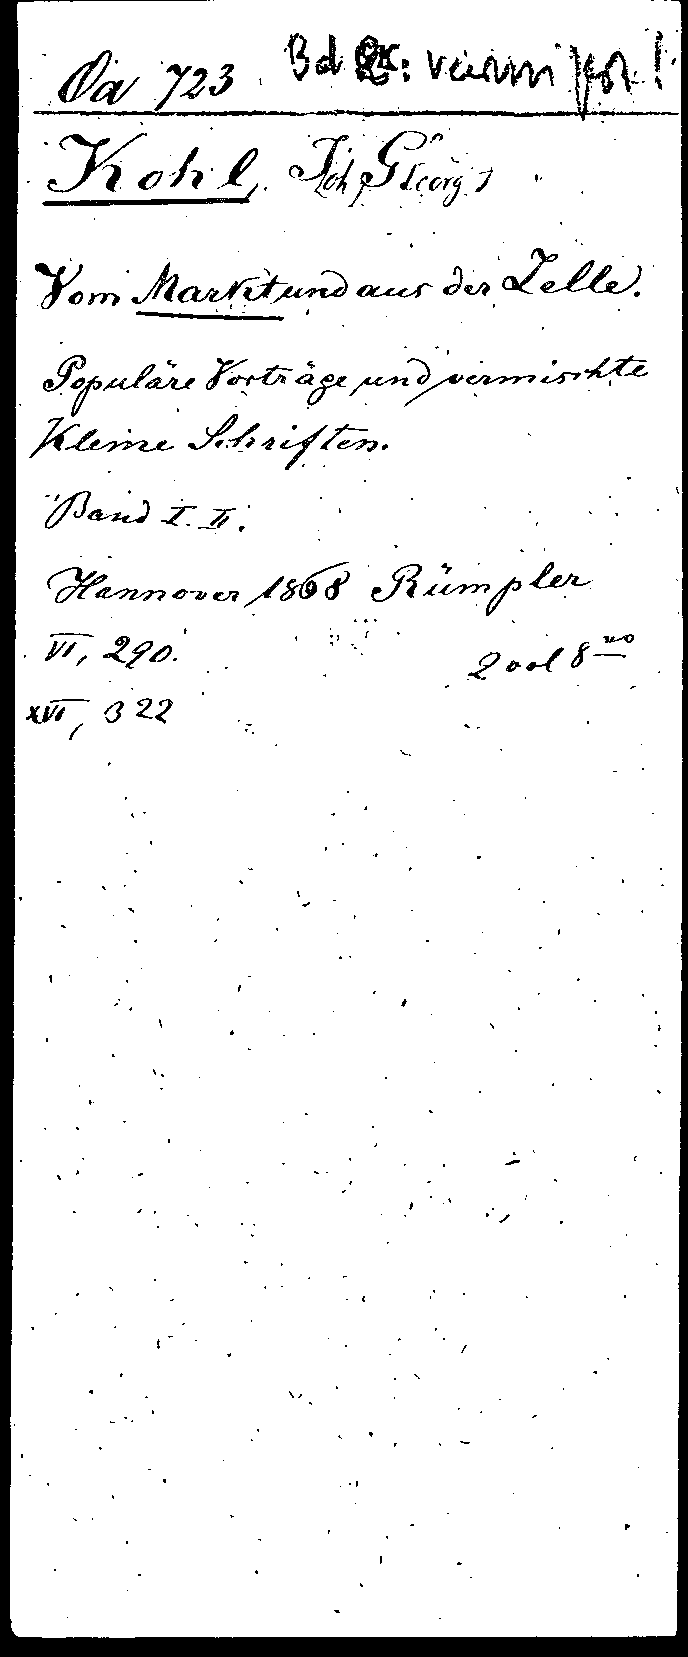 Oa 723 Bd 2: vermißt!
Kohl, Joh. Georg
Vom Markt und aus der Zelle.
Populäre Vorträge und vermischte
Kleine Schriften.
Band I. II.
Hannover 1868 Rümpler
VI, 290. 2 vol 8vo
XVI, 322